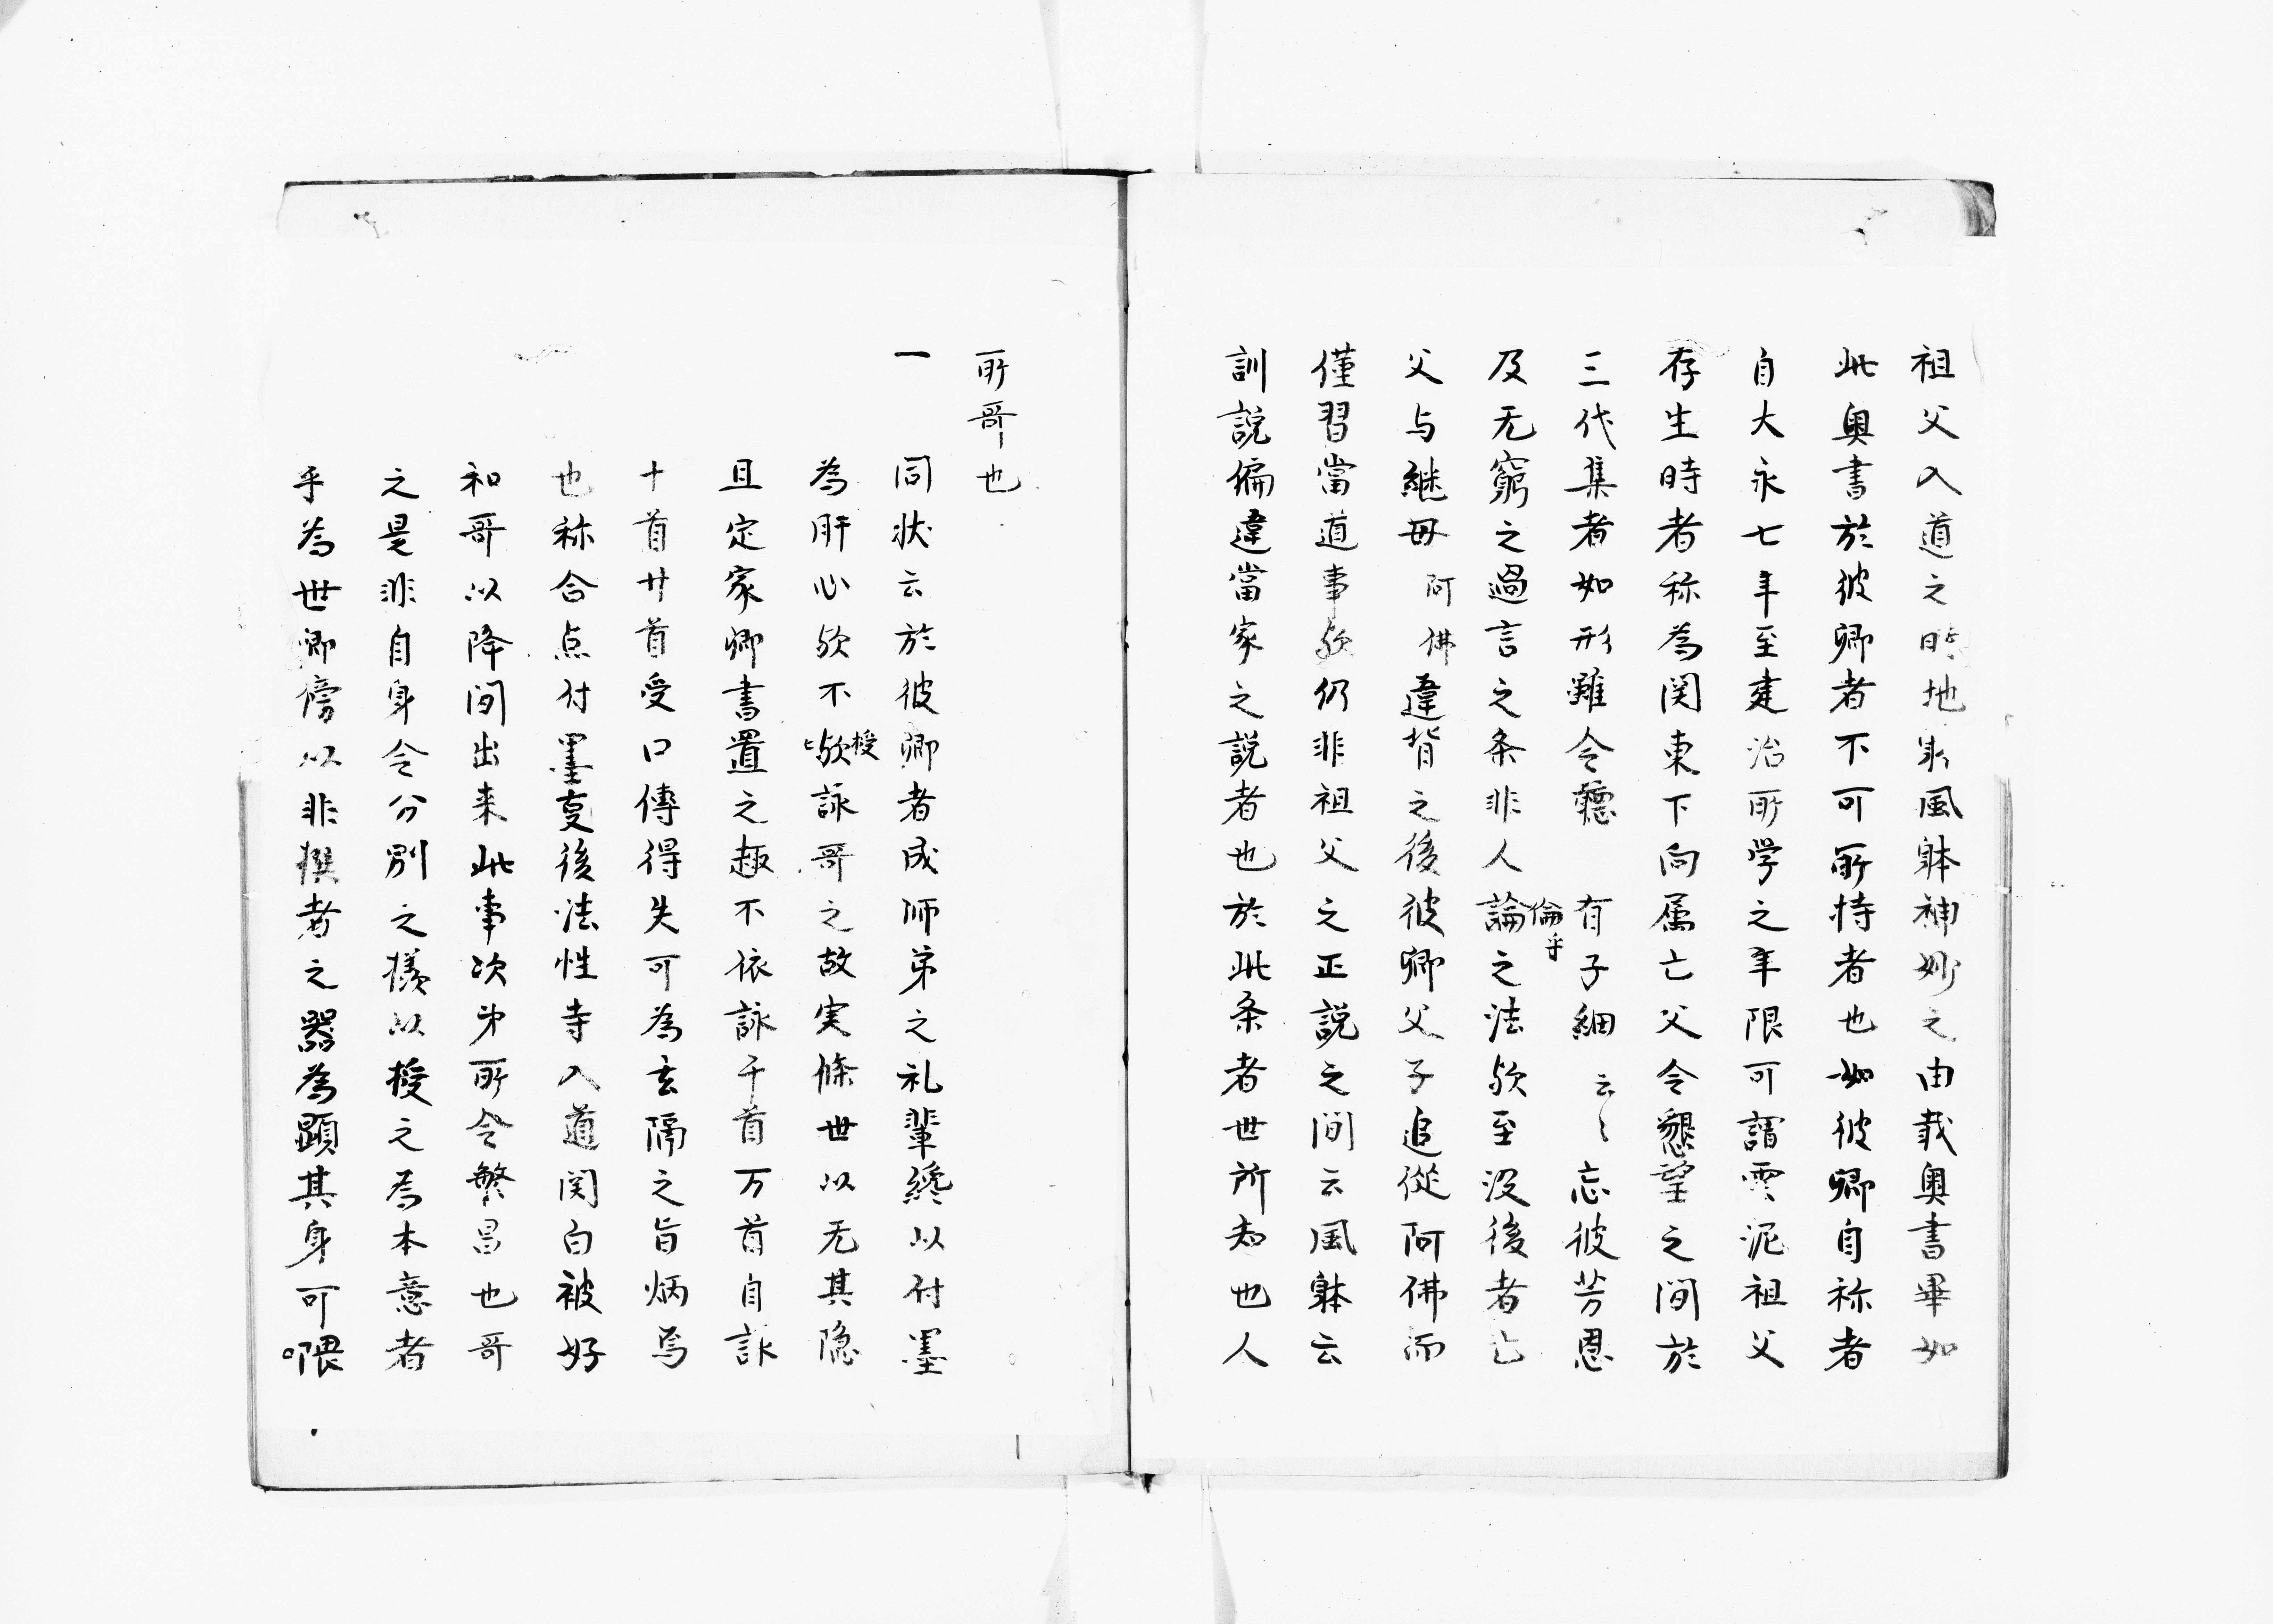 祖父入道之時地躰風躰神妙之由載奥書畢如
此奥書於彼卿者不可所恃者也如彼卿自称者
自大永七年至建治所学之年限可謂雲泥祖父
存生時者称為関東下向属亡父令懇望之間於
三代集者如形雖令聴 有子細云々忘彼芳恩
及无窮之過言之条非人論之法欤至没後者亡
倫乎
父与継母阿佛違背之後彼卿父子追従阿佛而
僅習當道事欤仍非祖父之正説之間云風躰云
訓説偏違當家之説者也於此条者世所知也人
所哥也
一 同状云於彼卿者成师弟之礼輩纔以付墨
為肝心欤不欤詠哥之故実條世以无其隠
授
且定家卿書置之趣不依詠千首万首自詠
十首廿首受口傳得失可為玄隔之旨炳焉
也称合点付墨叓後法性寺入道関白被好
和哥以降間出来此事次第所令繁昌也哥
之是非自身令分別之様以授之為本意者
乎為世卿傍以非撰者之器為顕其身可喂